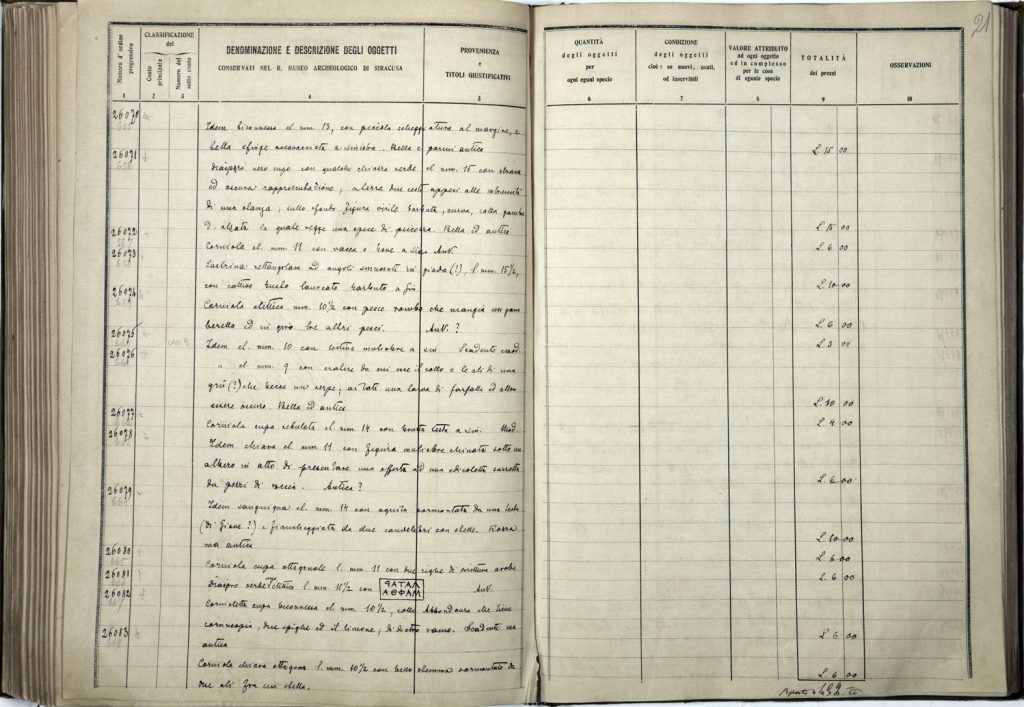 21
Numero d'ordine progressivo
CLASSIFICAZIONE del
Conto principale
Numero del sotto conto
DENOMINAZIONE E DESCRIZIONE DEGLI OGGETTI
CONSERVATI NEL R. MUSEO ARCHEOLOGICO DI SIRACUSA
PROVENIENZA
e
TITOLI GIUSTIFICATIVI
QUANTITÀ
degli oggetti
per
ogni egual specie
CONDIZIONE
degli oggetti
cioè: se nuovi, usati,
od inservibili
VALORE ATTRIBUITO
ad ogni oggetto
ed in complesso
per le cose
di eguale specie
TOTALITÀ
dei prezzi
OSSERVAZIONI
1 2 3 4 5 6 7 8 9 10
26070
Idem biconvessa el. mm. 13, con piccola scheggiatura al margine, e
bella sfinge accovacciata a sinistra. Bella e antica L. 15 00
26071
Diaspro nero cupo con qualche chiazza verde el. mm. 15 con strana
ed oscura rappresentazione;
di una stanga; sullo sfondo figura virile barbuta, curva, colla gamba
la quale regge una specie di Bella ed antica L. 15 00
26072
Corniola el. mm. 11 con vacca o a sin. Ant. L. 6 00
26073
Lastrina rettangolare ad angoli smussati in giada (?), l. mm. 15½,
con cattivo busto laureato barbuto a sin. L. 10 00
26074
Corniola elittica mm. 10½ con pesce rombo che mangia un gam
beretto ed in giro tre altri pesci. Ant. ? L. 6 00
26075
Idem el. mm. 10 con testina muliebre a sin. Scadente e mod. L. 3 00
26076
" el. mm. 9 con cratere da cui esce il collo e le ali di una
gru (?) che becca un serpe; ai lati una larva di farfalla ed altro
essere oscuro. Bella ed antica L. 10 00
26077
Corniola cupa el. mm. 14 con testa a sin. Mod. L. 4 00
26078
Idem chiara el. mm. 11 con figura muliebre chinata sotto un
albero in atto di presentare una offerta ad una edicoletta sorretta
da pezzi di roccia. Antica ? L. 6 00
26079
Idem sanguigna el. mm. 14 con aquila sormontata da una testa
(di Giove ?) e fiancheggiata da due candelabri con stelle. Rozza
ma antica L. 10 00
26080
Corniola cupa ottagonale l. mm. 11 con due righe di scrittura araba L. 6 00
26081
Diaspro verde elittico l. mm. 11½ con ΛΑΤΑΡ ΜΑΦΘΑ Ant. L. 6 00
26082
Cornioletta cupa biconvessa el. mm. 10½, colla Abbondanza che tiene
cornucopia, due spighe ed il timone; di dietro ramo. Scadente ma
antica L. 6 00
26083
Corniola chiara ottagona l. mm. 10½ con bello stemma sormontato da
due ali fra cui stella. L. 6 00
Riporto